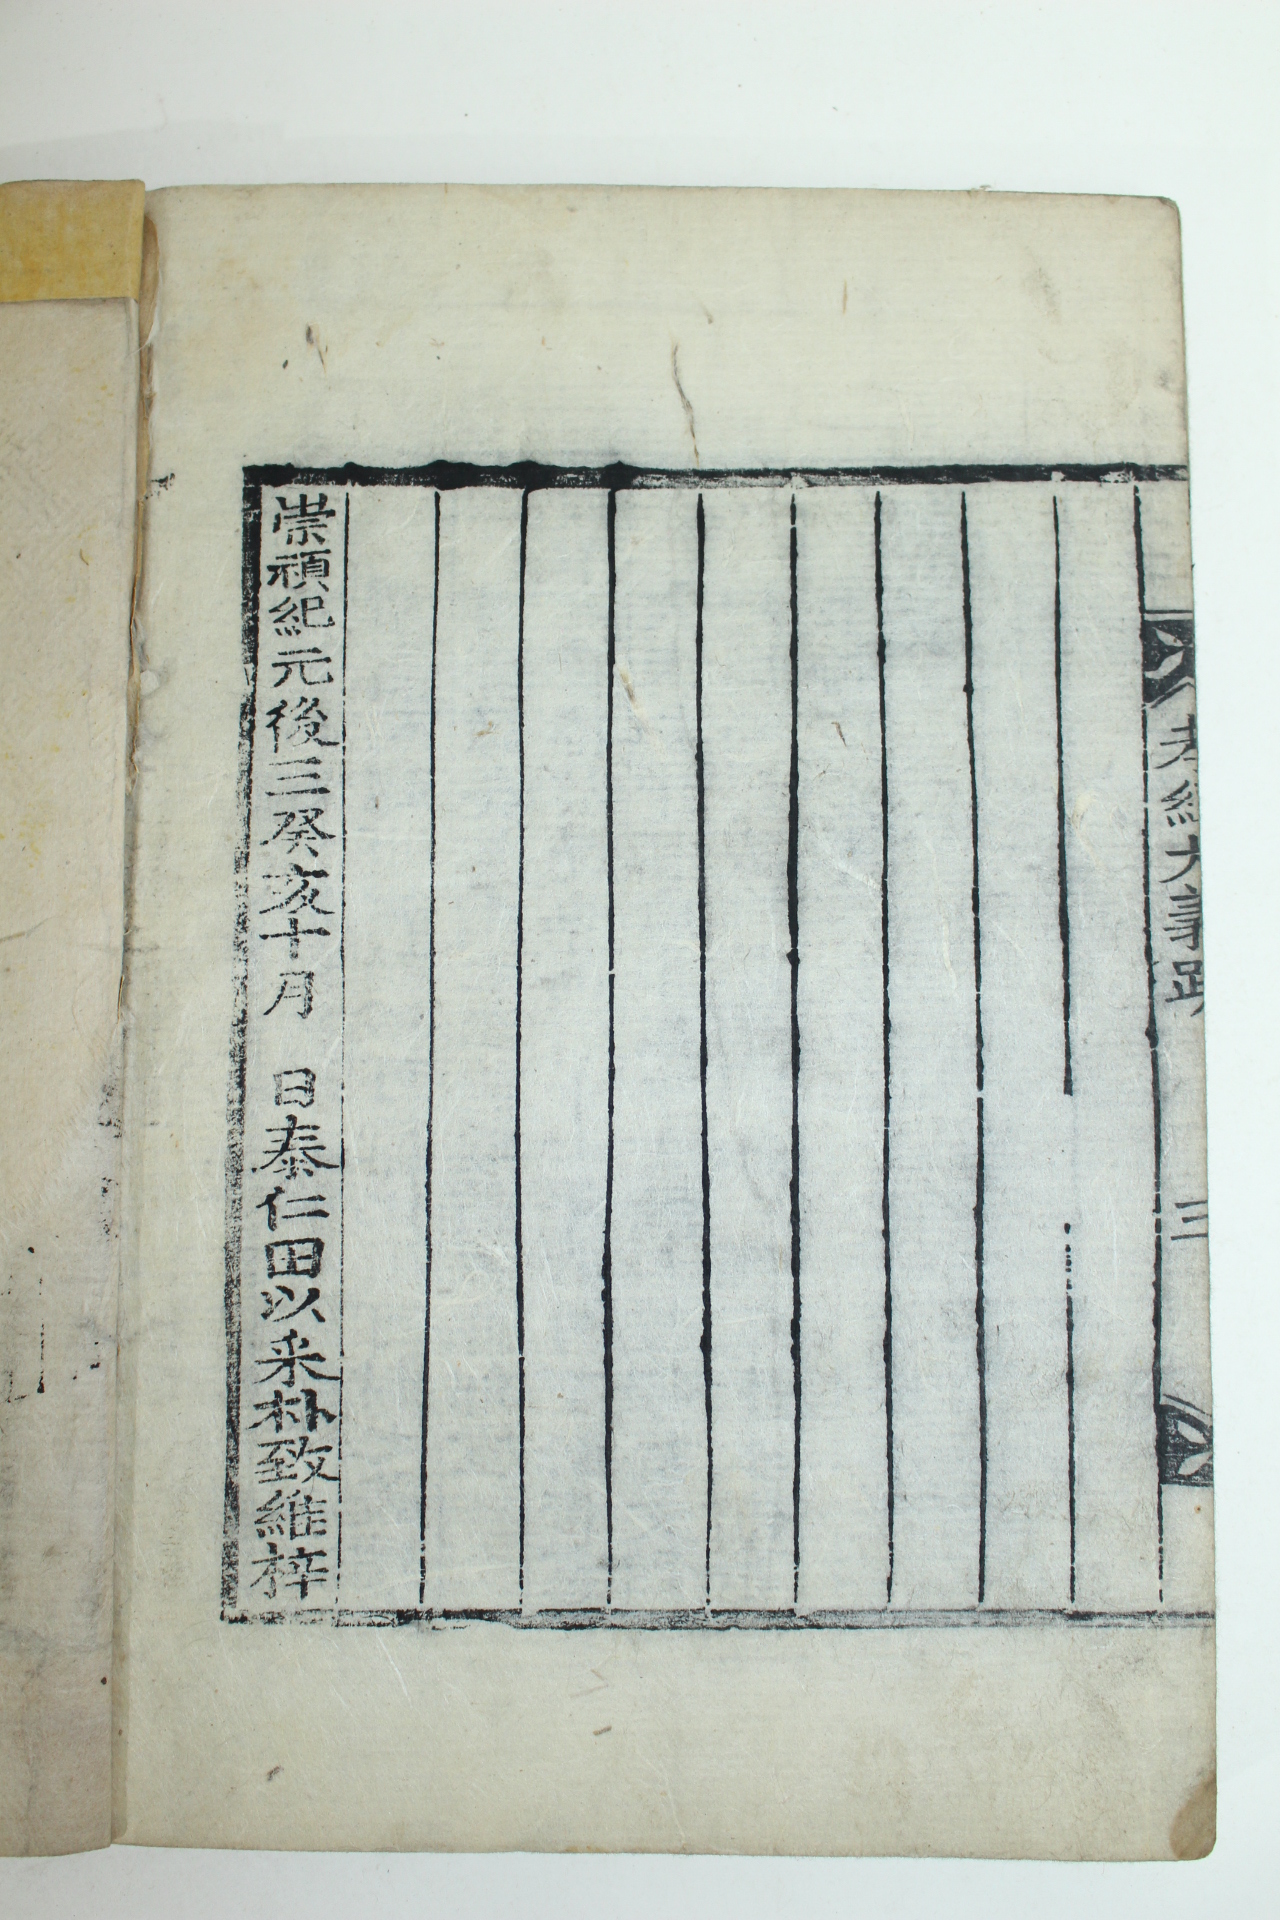 孝經大義跋
三
崇禎紀元後三癸亥十月　日泰仁田以采朴致維梓